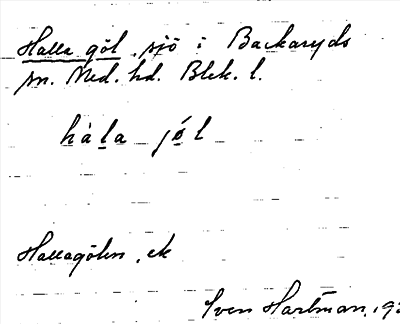 Halla göl, sjö i Backaryds
sn. Med. hd. Blek. l.
hàl̲a jó̲l
Hallagölen, ek
Sven Hartman, 19